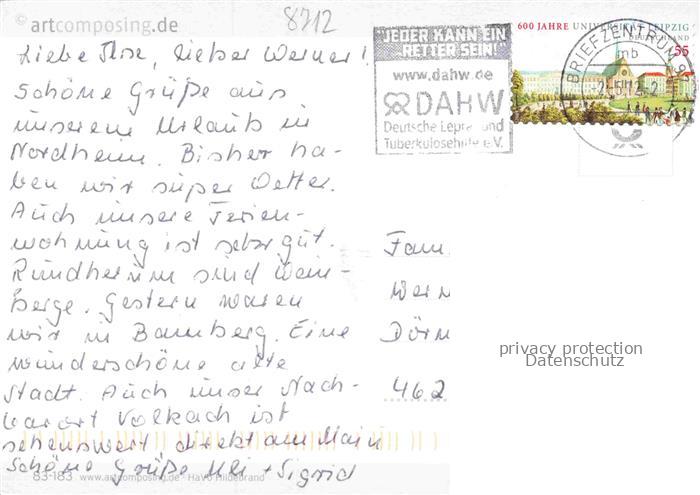 artcomposing.de
8712
Liebe Ilse, lieber Werner!
Schöne Grüße aus
unserem Urlaub in
Nordheim. Bisher ha-
ben wir super Wetter.
Auch unsere Ferien-
wohnung ist sehr gut.
Rundherum sind Wein-
berge. Gestern waren
wir in Bamberg. Eine
wunderschöne alte
Stadt. Auch unser Nach-
barort Volkach ist
sehenswert direkt am Main
Schöne Grüße Uli + Sigrid
83-183 www.artcomposing.de - HaVo Hildebrand
"JEDER KANN EIN
RETTER SEIN!"
www.dahw.de
DAHW
Deutsche Lepra- und
Tuberkulosehilfe e.V.
600 JAHRE UNIVERSITÄT LEIPZIG
DEUTSCHLAND
55
BRIEFZENTRUM 9
mb
Fam
Wern
Dörn
462
privacy protection
Datenschutz